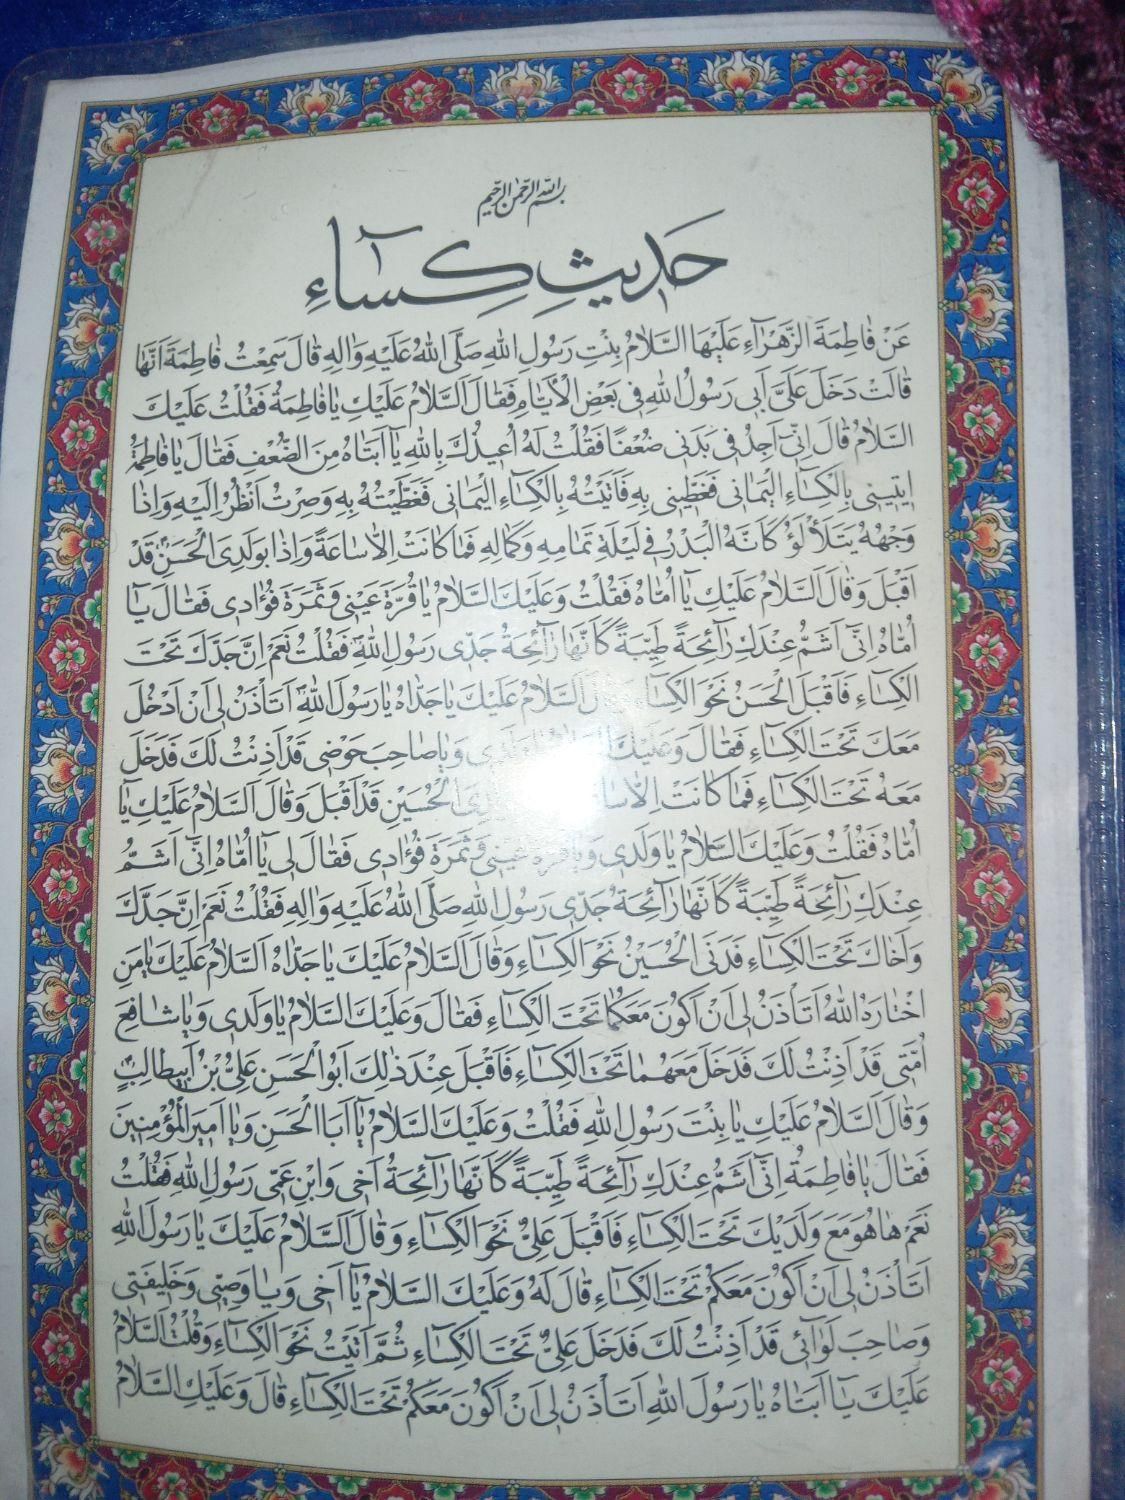 بسم الله الرحمن الرحيم
حَديثِ كِسٰاءِ
عَنْ فٰاطِمَةَ الزَّهْرٰآءِ عَلَيْهَا السَّلامُ بِنْتِ رَسُولِ اللهِ صَلَّى اللهُ عَلَيْهِ وَالِهِ قٰالَ سَمِعْتُ فٰاطِمَةَ اَنَّهٰا
قٰالَتْ دَخَلَ عَلَىَّ اَبى رَسُولُ اللهِ فى بَعْضِ الْاَيّٰامِ فَقٰالَ اَلسَّلامُ عَلَيْكِ يٰا فٰاطِمَةُ فَقُلْتُ عَلَيْكَ
السَّلامُ قٰالَ اِنّى اَجِدُ فى بَدَنى ضُعْفًا فَقُلْتُ لَهُ اُعيذُكَ بِاللهِ يٰآ اَبَتٰاهُ مِنَ الضُّعْفِ فَقٰالَ يٰا فٰاطِمَةُ
ايتينى بِالْكِسٰآءِ الْيَمٰانى فَغَطّينى بِهِ فَاَتَيْتُهُ بِالْكِسٰآءِ الْيَمٰانى فَغَطَّيْتُهُ بِهِ وَصِرْتُ اَنْظُرُ اِلَيْهِ وَاِذٰا
وَجْهُهُ يَتَلَأْلَؤُ كَاَنَّهُ الْبَدْرُ فى لَيْلَةِ تَمٰامِهِ وَكَمٰالِهِ فَمٰا كٰانَتْ اِلّٰا سٰاعَةً وَاِذٰا بِوَلَدِىَ الْحَسَنِ قَدْ
اَقْبَلَ وَقٰالَ السَّلامُ عَلَيْكِ يٰآ اُمّٰاهُ فَقُلْتُ وَعَلَيْكَ السَّلامُ يٰا قُرَّةَ عَيْنى وَثَمَرَةَ فُؤٰادى فَقٰالَ يٰآ
اُمّٰاهُ اِنّى اَشَمُّ عِنْدَكِ رٰآئِحَةً طَيِّبَةً كَاَنَّهٰا رٰآئِحَةُ جَدّى رَسُولِ اللهِ فَقُلْتُ نَعَمْ اِنَّ جَدَّكَ تَحْتَ
الْكِسٰآءِ فَاَقْبَلَ الْحَسَنُ نَحْوَ الْكِسٰآءِ السَّلامُ عَلَيْكَ يٰا جَدّٰاهُ يٰا رَسُولَ اللهِ اَتَأْذَنُ لى اَنْ اَدْخُلَ
مَعَكَ تَحْتَ الْكِسٰآءِ فَقٰالَ وَعَلَيْكَ وَيٰا صٰاحِبَ حَوْضى قَدْ اَذِنْتُ لَكَ فَدَخَلَ
مَعَهُ تَحْتَ الْكِسٰآءِ فَمٰا كٰانَتْ اِلّٰا الْحُسَيْنِ قَدْ اَقْبَلَ وَقٰالَ اَلسَّلامُ عَلَيْكِ يٰآ
اُمّٰاهُ فَقُلْتُ وَعَلَيْكَ السَّلامُ يٰا وَلَدى وَيٰا قُرَّةَ عَيْنى وَثَمَرَةَ فُؤٰادى فَقٰالَ لى يٰآ اُمّٰاهُ اِنّى اَشَمُّ
عِنْدَكِ رٰآئِحَةً طَيِّبَةً كَاَنَّهٰا رٰآئِحَةُ جَدّى رَسُولِ اللهِ صَلَّى اللهُ عَلَيْهِ وَالِهِ فَقُلْتُ نَعَمْ اِنَّ جَدَّكَ
وَاَخٰاكَ تَحْتَ الْكِسٰآءِ فَدَنَى الْحُسَيْنُ نَحْوَ الْكِسٰآءِ وَقٰالَ اَلسَّلامُ عَلَيْكَ يٰا جَدّٰاهُ اَلسَّلامُ عَلَيْكَ يٰا مَنِ
اخْتٰارَهُ اللهُ اَتَأْذَنُ لى اَنْ اَكُونَ مَعَكُمٰا تَحْتَ الْكِسٰآءِ فَقٰالَ وَعَلَيْكَ السَّلامُ يٰا وَلَدى وَيٰا شٰافِعَ
اُمَّتى قَدْ اَذِنْتُ لَكَ فَدَخَلَ مَعَهُمٰا تَحْتَ الْكِسٰآءِ فَاَقْبَلَ عِنْدَ ذٰلِكَ اَبُو الْحَسَنِ عَلِىُّ بْنُ اَبيطالِبٍ
وَقٰالَ اَلسَّلامُ عَلَيْكِ يٰا بِنْتَ رَسُولِ اللهِ فَقُلْتُ وَعَلَيْكَ السَّلامُ يٰآ اَبَا الْحَسَنِ وَيٰآ اَميرَ الْمُؤْمِنينَ
فَقٰالَ يٰا فٰاطِمَةُ اِنّى اَشَمُّ عِنْدَكِ رٰآئِحَةً طَيِّبَةً كَاَنَّهٰا رٰآئِحَةُ اَخى وَابْنِ عَمّى رَسُولِ اللهِ فَقُلْتُ
نَعَمْ هٰا هُوَ مَعَ وَلَدَيْكَ تَحْتَ الْكِسٰآءِ فَاَقْبَلَ عَلِىٌّ نَحْوَ الْكِسٰآءِ وَقٰالَ اَلسَّلامُ عَلَيْكَ يٰا رَسُولَ اللهِ
اَتَأْذَنُ لى اَنْ اَكُونَ مَعَكُمْ تَحْتَ الْكِسٰآءِ قٰالَ لَهُ وَعَلَيْكَ السَّلامُ يٰآ اَخى وَيٰا وَصِيّى وَخَليفَتى
وَصٰاحِبَ لِوٰآئى قَدْ اَذِنْتُ لَكَ فَدَخَلَ عَلِىٌّ تَحْتَ الْكِسٰآءِ ثُمَّ اَتَيْتُ نَحْوَ الْكِسٰآءِ وَقُلْتُ السَّلامُ
عَلَيْكَ يٰآ اَبَتٰاهُ يٰا رَسُولَ اللهِ اَتَأْذَنُ لى اَنْ اَكُونَ مَعَكُمْ تَحْتَ الْكِسٰآءِ قٰالَ وَعَلَيْكِ السَّلامُ